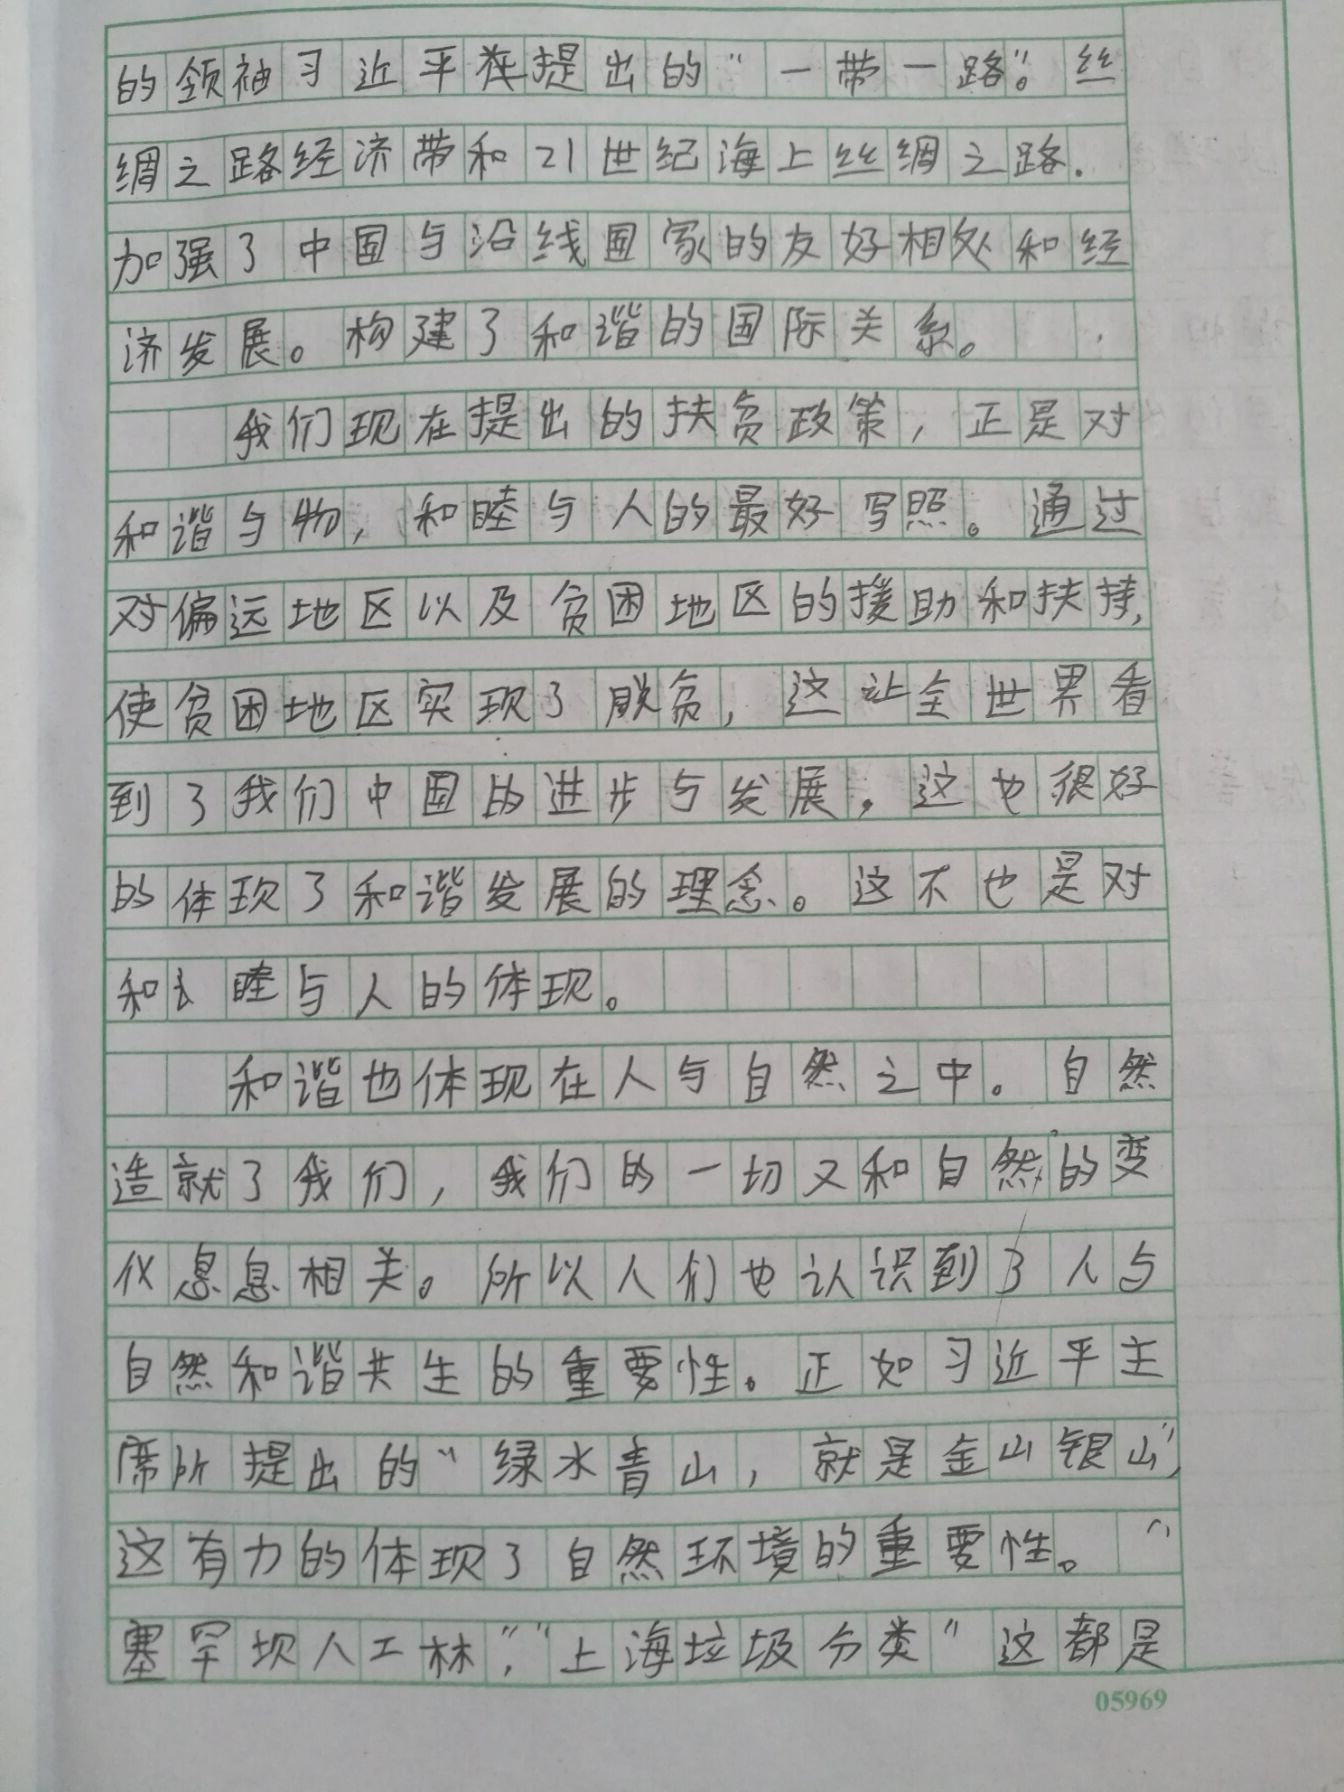 的领袖习近平在提出的“一带一路”。丝
绸之路经济带和21世纪海上丝绸之路.
加强了中国与沿线国家的友好相处和经
济发展。构建了和谐的国际关系。
我们现在提出的扶贫政策，正是对
和谐与物，和睦与人的最好写照。通过
对偏远地区以及贫困地区的援助和扶持,
使贫困地区实现了脱贫，这让全世界看
到了我们中国的进步与发展，这也很好
的体现了和谐发展的理念。这不也是对
和讠睦与人的体现。
和谐也体现在人与自然之中。自然
造就了我们，我们的一切又和自然的变
化息息相关。所以人们也认识到了人与
自然和谐共生的重要性。正如习近平主
席所提出的“绿水青山，就是金山银山”,
这有力的体现了自然环境的重要性。“
塞罕坝人工林”,“上海垃圾分类”这都是
05969